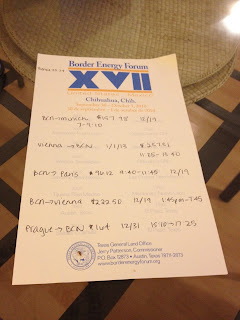 Border Energy Forum
XVII
Chihuahua, Chih.
BCN → munich $157.98 12/19
7-9:10
Vienna → BCN 1/1/13 $257.51
11:25-13:40
BCN → Paris $90.12 9:40-11:45 12/19
BCN → Vienna $222.50 12/19 1:45pm-7:45
Prague → BCN 12/31 15:10→17:25
Texas General Land Office
Jerry Patterson, Commissioner
P.O. Box 12873 • Austin, Texas 78711-2873
www.borderenergyforum.org